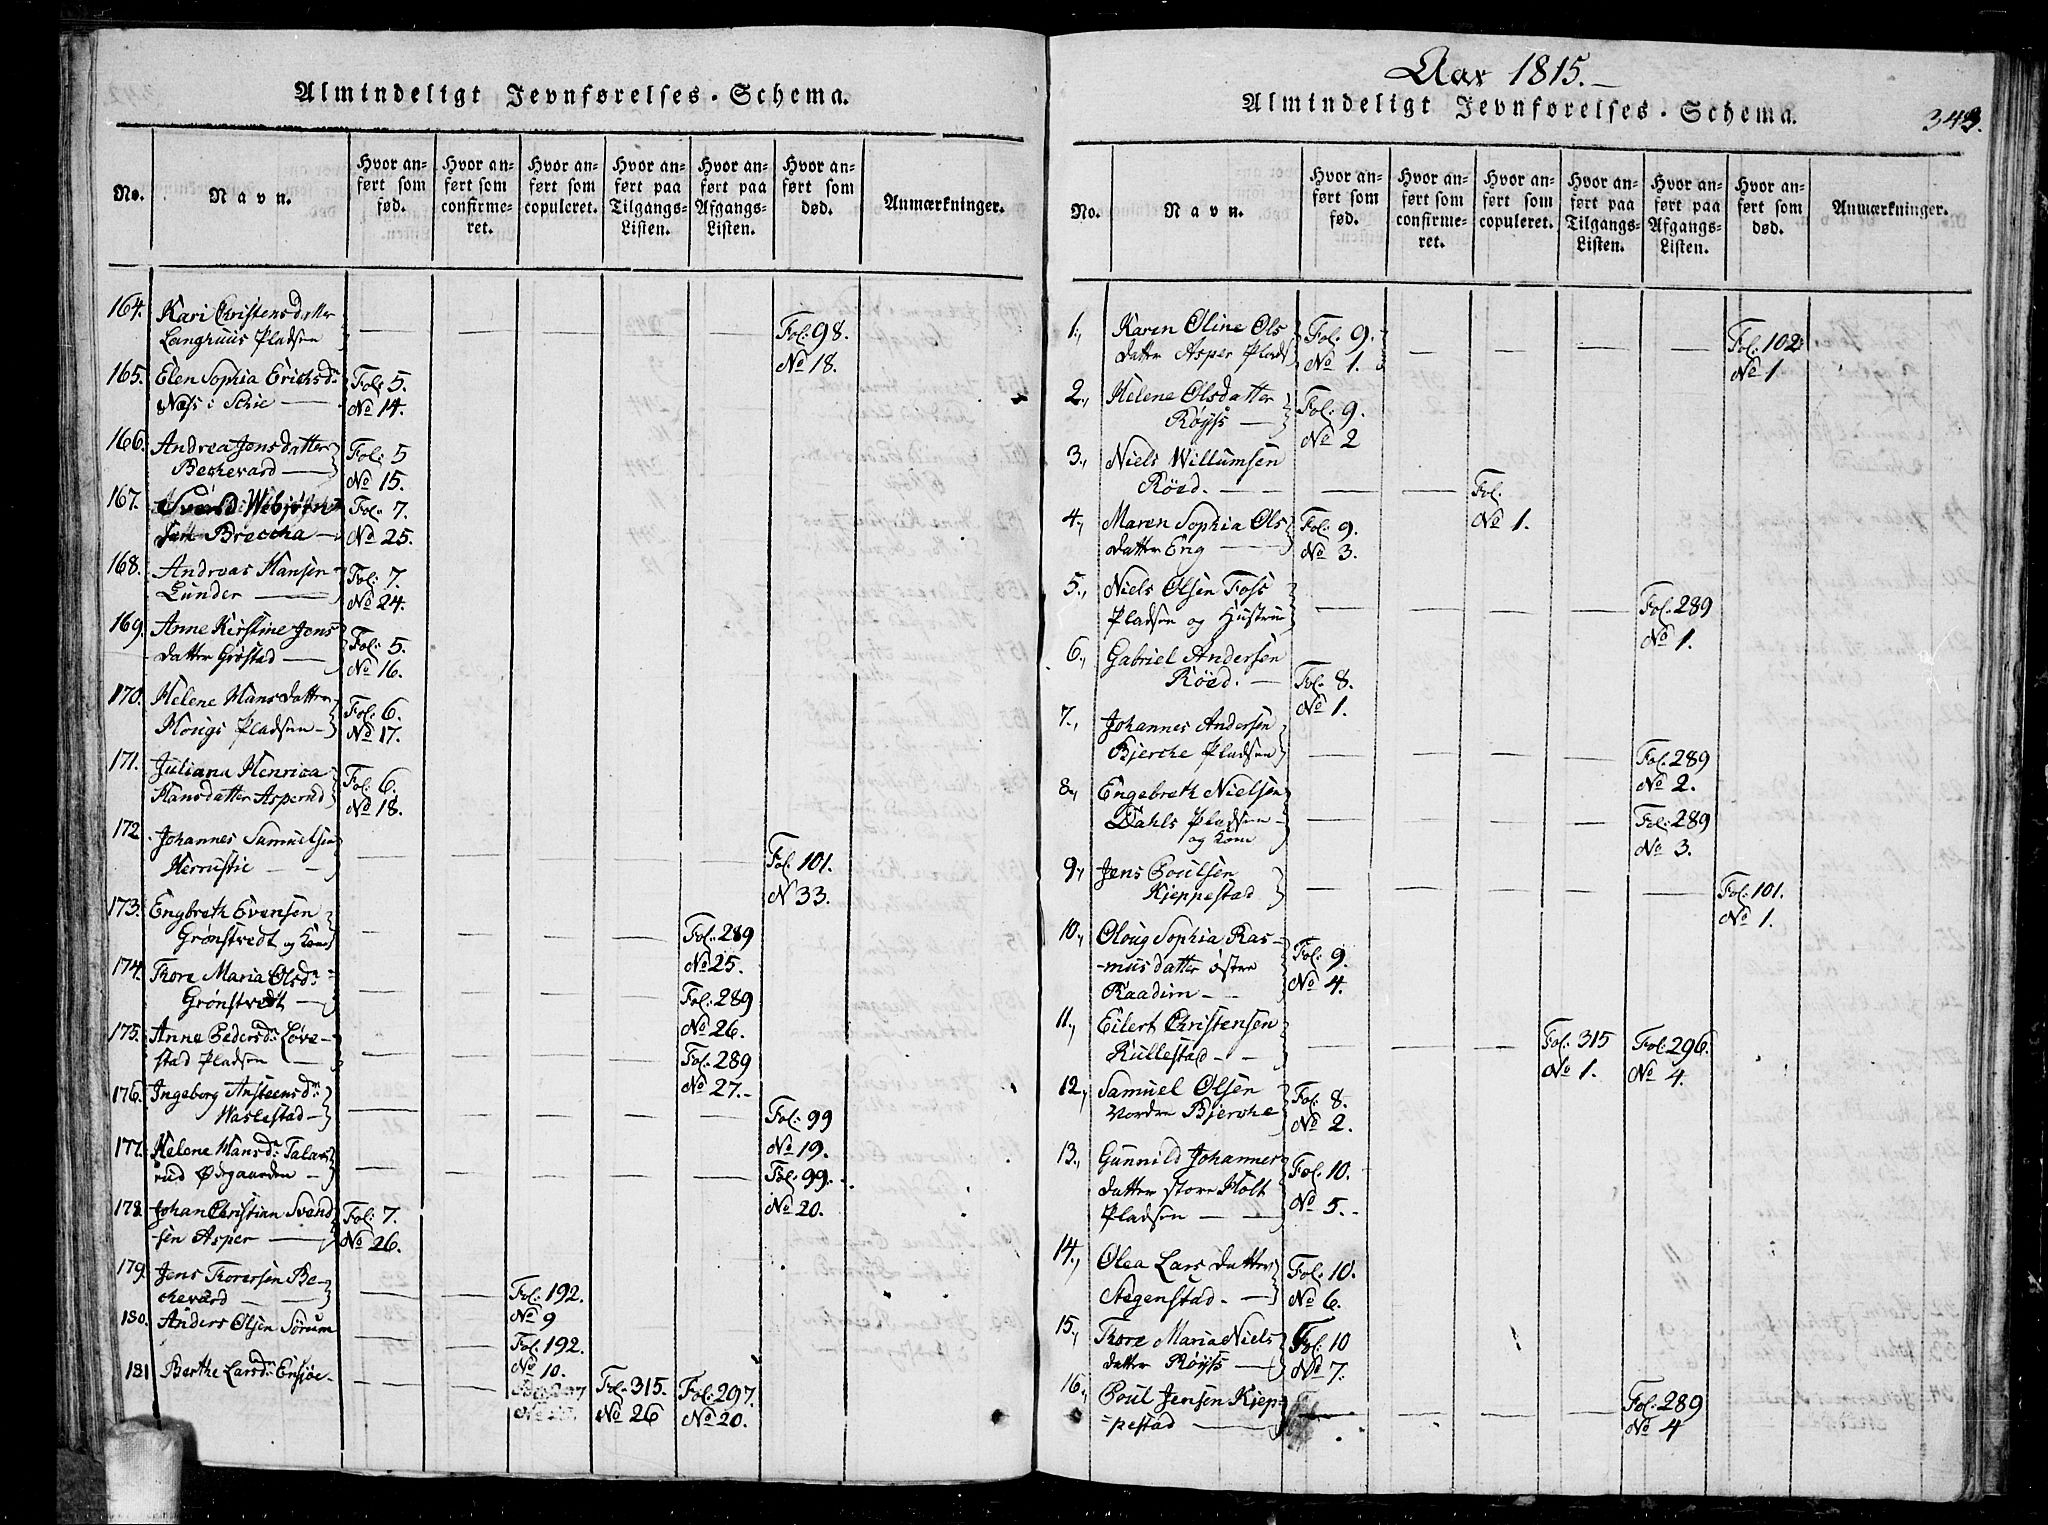 Almindeligt Jevnførelses-Schema.
No.
Navn.
Hvor anført som fød.
Hvor anført som confirmeret.
Hvor anført som copuleret.
Hvor anført paa Tilgangs-Listen.
Hvor anført paa Afgangs-Listen.
Hvor anført som død.
Anmærkninger.
164. Kari Christensdatter
Langhuus Pladsen — — — — — Fol: 98.
No 18.
165. Elen Sophia Erichsdr Fol: 5.
Næss i Schie — No 14.
166. Andrea Jonsdatter Fol: 5
Bechevard — No 15.
167. Webjørns Fol: 7.
Datt Breccha — No 25.
168. Andreas Hansen Fol: 7.
Lunder — No 24.
169. Anne Kirstine Jons
datter Grøstad — Fol: 5.
No 16.
170. Helene Hansdatter Fol: 6.
Hougs Pladsen — No 17.
171. Juliana Henrica Fol: 6.
Hansdatter Asperud No 18.
172. Johannes Samuelsen
Herrustie — — — — — Fol. 101.
N 33.
173. Engbreth Evensen
Grønstvedt og Kone — — — — Fol: 289
No 25.
174. Thore Maria Olsdr
Grønstvedt — — — — — Fol: 289
No 26.
175. Anne Pedersdr Løve-
stad Pladsen — — — — — Fol: 289
No 27.-
176. Ingeborg Ansteensdr
Waslestad — — — — — Fol: 99
No 19.
177. Helene Hansdr Talan
rud Ødgaarden — — — — — Fol: 99.
No 20.
178. Johan Christian Svend Fol: 7.
sen Asper — No 26.
179. Jens Thoresen Be-
chevard — — — Fol: 192.
No 9
180. Anders Olsen Sørum — — Fol: 192.
No 10.
181 Berthe Larsdr Ensjøe — — Fol: 315. Fol: 297.
No 26 No 20.
Aar 1815.-
Almindeligt Jevnførelses-Schema.
343.
No.
Navn.
Hvor anført som fød.
Hvor anført som confirmeret.
Hvor anført som copuleret.
Hvor anført paa Tilgangs-Listen.
Hvor anført paa Afgangs-Listen.
Hvor anført som død.
Anmærkninger.
1., Karen Oline Ols Fol: 9. — — — — Fol: 102.
datter Asper Plads No 1. No 1
2., Helene Olsdatter Fol: 9.
Røyss — No 2
3., Niels Willumsen
Røed. — — — — Fol.
No 1.
4., Maren Sophia Ols Fol: 9.
datter Eng — No 3.
5., Niels Olsen Foss
Pladsen og Hustrue — — — — Fol. 289
No 1.
6., Gabriel Andersen
Røed. — Fol. 8.
No 1.
7., Johannes Andersen
Bjerche Pladsen — — — — Fol. 289
No 2.
8., Engebreth Nielsen
Dahls Pladsen — — — — — Fol. 289
og Kone No 3.
9., Jens Poulsen
Kjeppestad — — — — — Fol: 101.
No 1.
10., Oloug Sophia Ras-
-musdatter østre Fol: 9.
Raadim — No 4.
11., Eilert Christensen
Kullestad — — — — — Fol. 315 Fol. 296.
No 1. No 4.
12., Samuel Olsen Fol: 8.
Nordre Bjerche No 2.
13., Gunnild Johannes
datter store Holt Fol: 10.
Pladsen — — No 5.-
14., Olea Lars datter Fol: 10.
Stegenstad. — No 6.
15., Thore Maria Niels Fol: 10
datter Røyss — No 7.
16., Poul Jensen Kjep-
=pestad — — Fol: 289
No 4